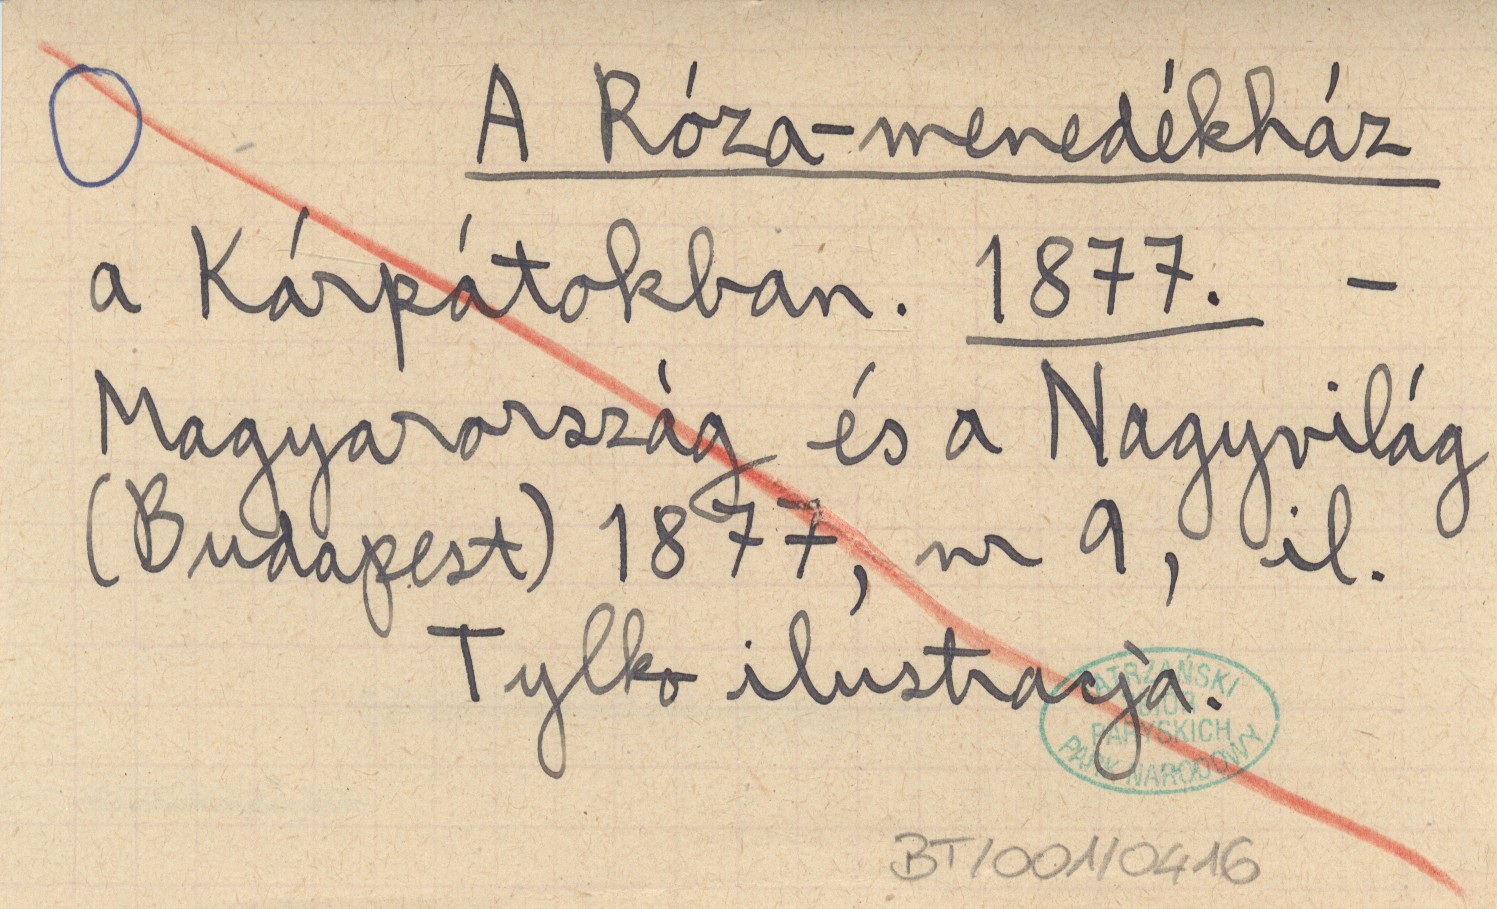 A Róza-menedékház
a Kárpátokban. 1877. -
Magyarország és a Nagyvilág
(Budapest) 1877, nr 9, il.
Tylko ilustracja.
TATRZAŃSKI
ZBIÓR
PARYSKICH
PARK NARODOWY
BT/001/0416